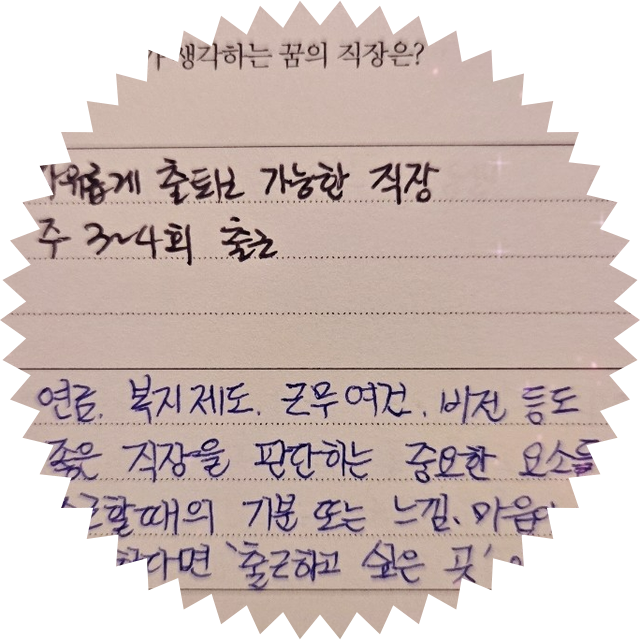 생각하는 꿈의 직장은?
자유롭게 출퇴근 가능한 직장
주 3~4회 출근
연금, 복지제도, 근무여건, 비전 등도
좋은 직장을 판단하는 중요한 요소들
출근할때의 기분 또는 느낌, 마음
한다면 '출근하고 싶은 곳'